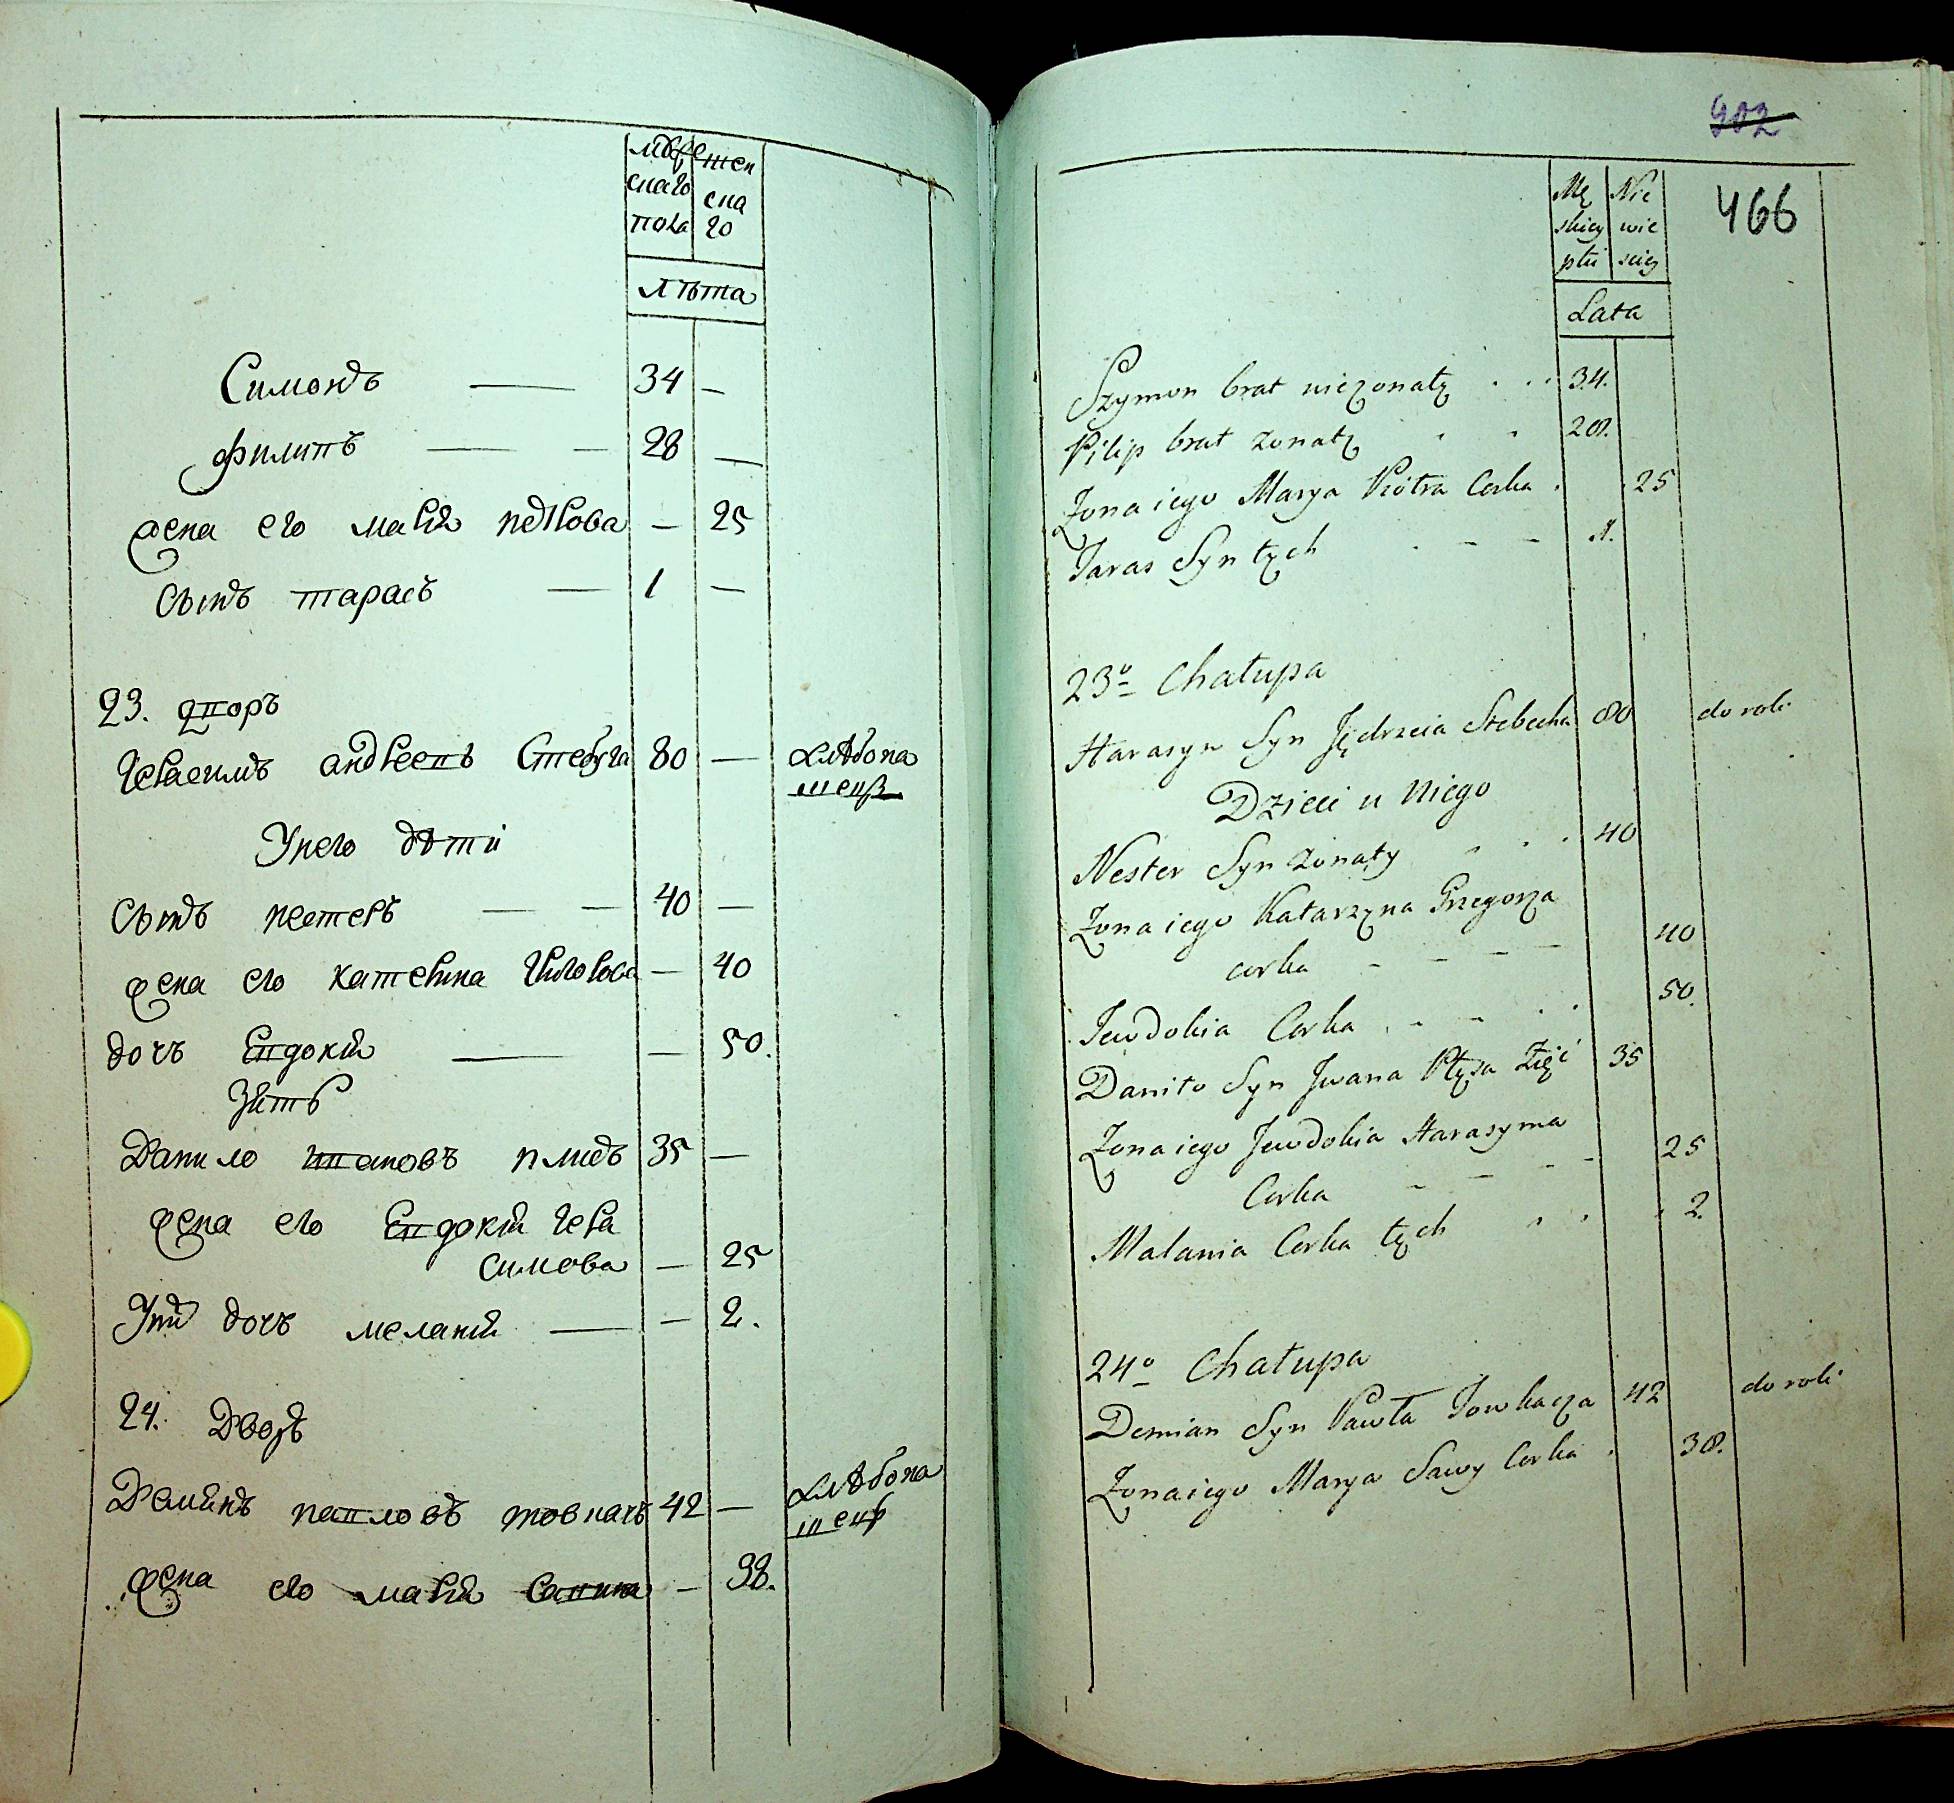 мужескаго пола
женскаго
лѣта
Симонъ — 34 —
Филипъ — — 28 —
жена его Марія Петрова — 25
сынъ Тарасъ — 1 —
23. дворъ
Герасимъ Андреевъ Стебуха 80 — хлѣбопашецъ
У него дѣти
сынъ Нестеръ — — 40 —
жена его Катерина Григорова — 40
дочъ Евдокія — — 50.
Зять
Данило Ивановъ 35 —
жена его Евдокія Гера
симова — 25
У нихъ дочъ Меланія — — 2.
24. Дворъ
Деміянъ Павловъ Товкачъ 42 — хлѣбопашецъ
жена его Марія Савина — 38.
402
466
Męskiey płci
Niewieściey
Lata
Szymon brat nieżonaty . . . 34.
Pilip brat żonaty . . 28.
Żona iego Marya Piotra Corka . . 25
Taras Syn tych . - - 1.
23º Chałupa
Harasym Syn Jędrzeia Stebucha 80 do roli
Dzieci u Niego
Nester Syn żonaty . . . 40
Żona iego Katarzyna Grzegorza
corka - - - - 40
Jewdokia Corka . - - . . 50.
Daniło Syn Jwana Zięć 35
Żona iego Jewdokia Harasyma
Corka - - - - 25
Malania Corka tych . . . 2.
24º Chałupa
Demian Syn Pawła Towkacza 42 do roli
Żona iego Marya Sawy Corka . 38.